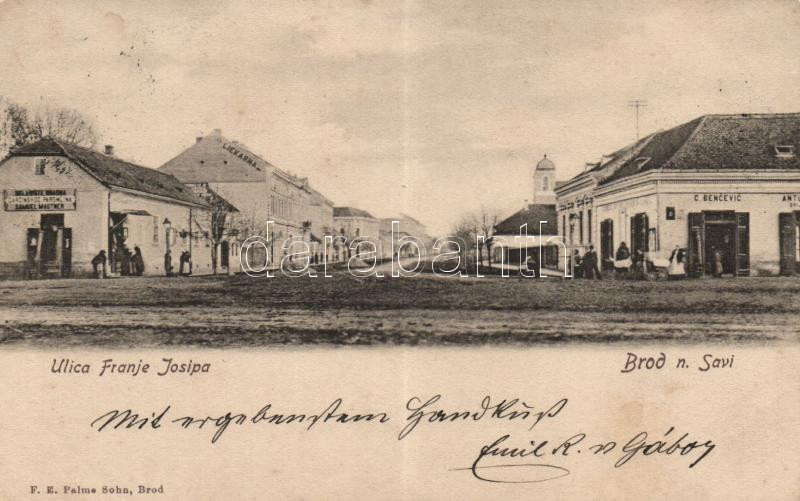 LJEKARNA
SKLADIŠTE BRAŠNA
SAMUEL MAUTNER
C. BENČEVIĆ
ANT
darabanth
Ulica Franje Josipa
Brod n. Savi
Mit ergebenstem Handkuß
Emil R. v Gábor
F. E. Palme Sohn, Brod